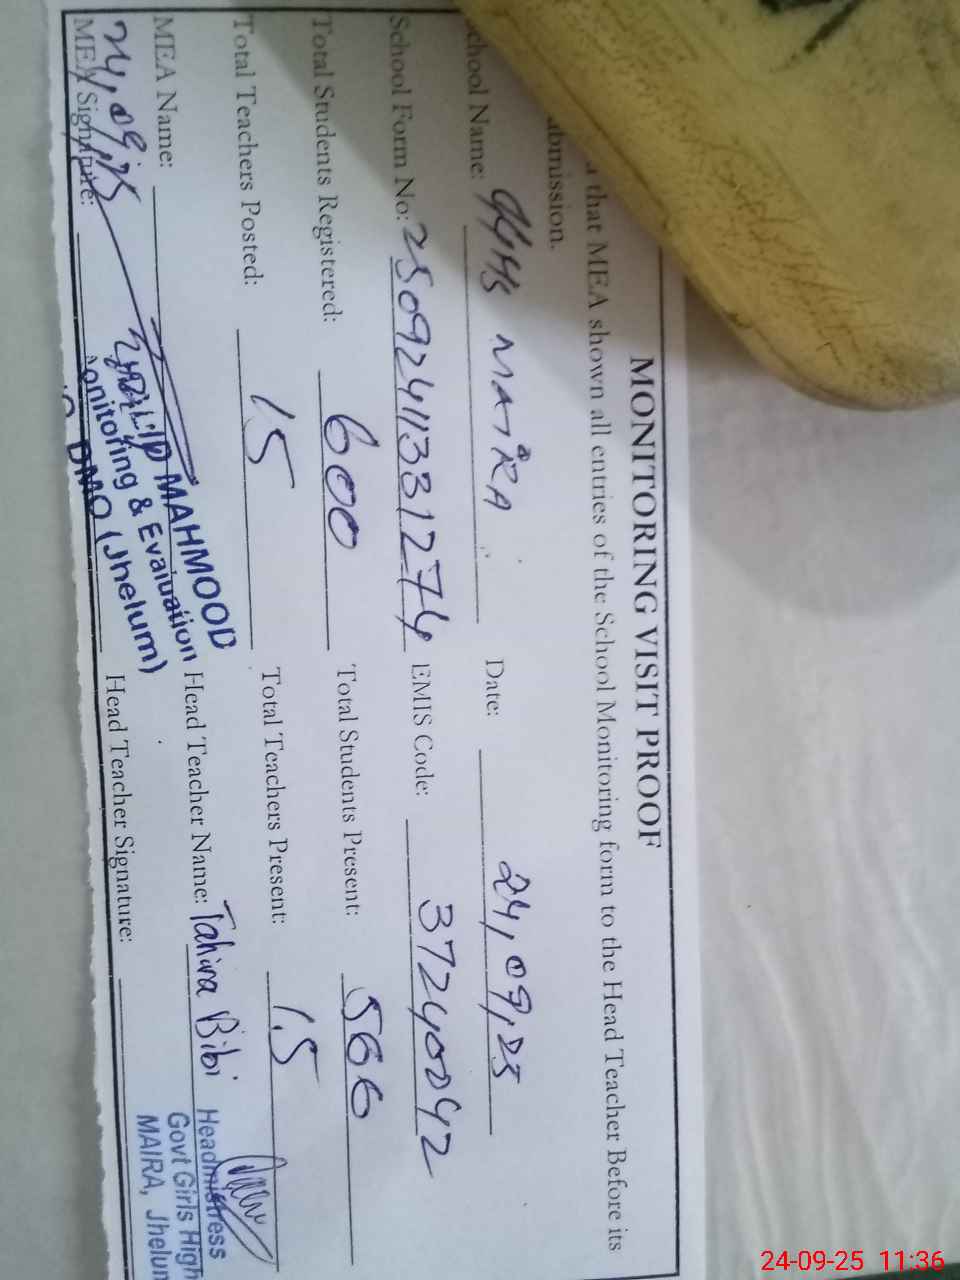 MONITORING VISIT PROOF
that MEA shown all entries of the School Monitoring form to the Head Teacher Before its
ubmission.
chool Name: GGHS MAIRA Date: 24,09,25
School Form No: 25092411331274 EMIS Code: 37240042
Total Students Registered: 600 Total Students Present: 566
Total Teachers Posted: 15 Total Teachers Present: 15
MEA Name: KHALID MAHMOOD Head Teacher Name: Tahira Bibi
onitoring & Evaluation
DMO (Jhelum)
MEA Signature: Head Teacher Signature:
24,09,25
Headmistress
Govt Girls High
MAIRA, Jhelum
24-09-25 11:36